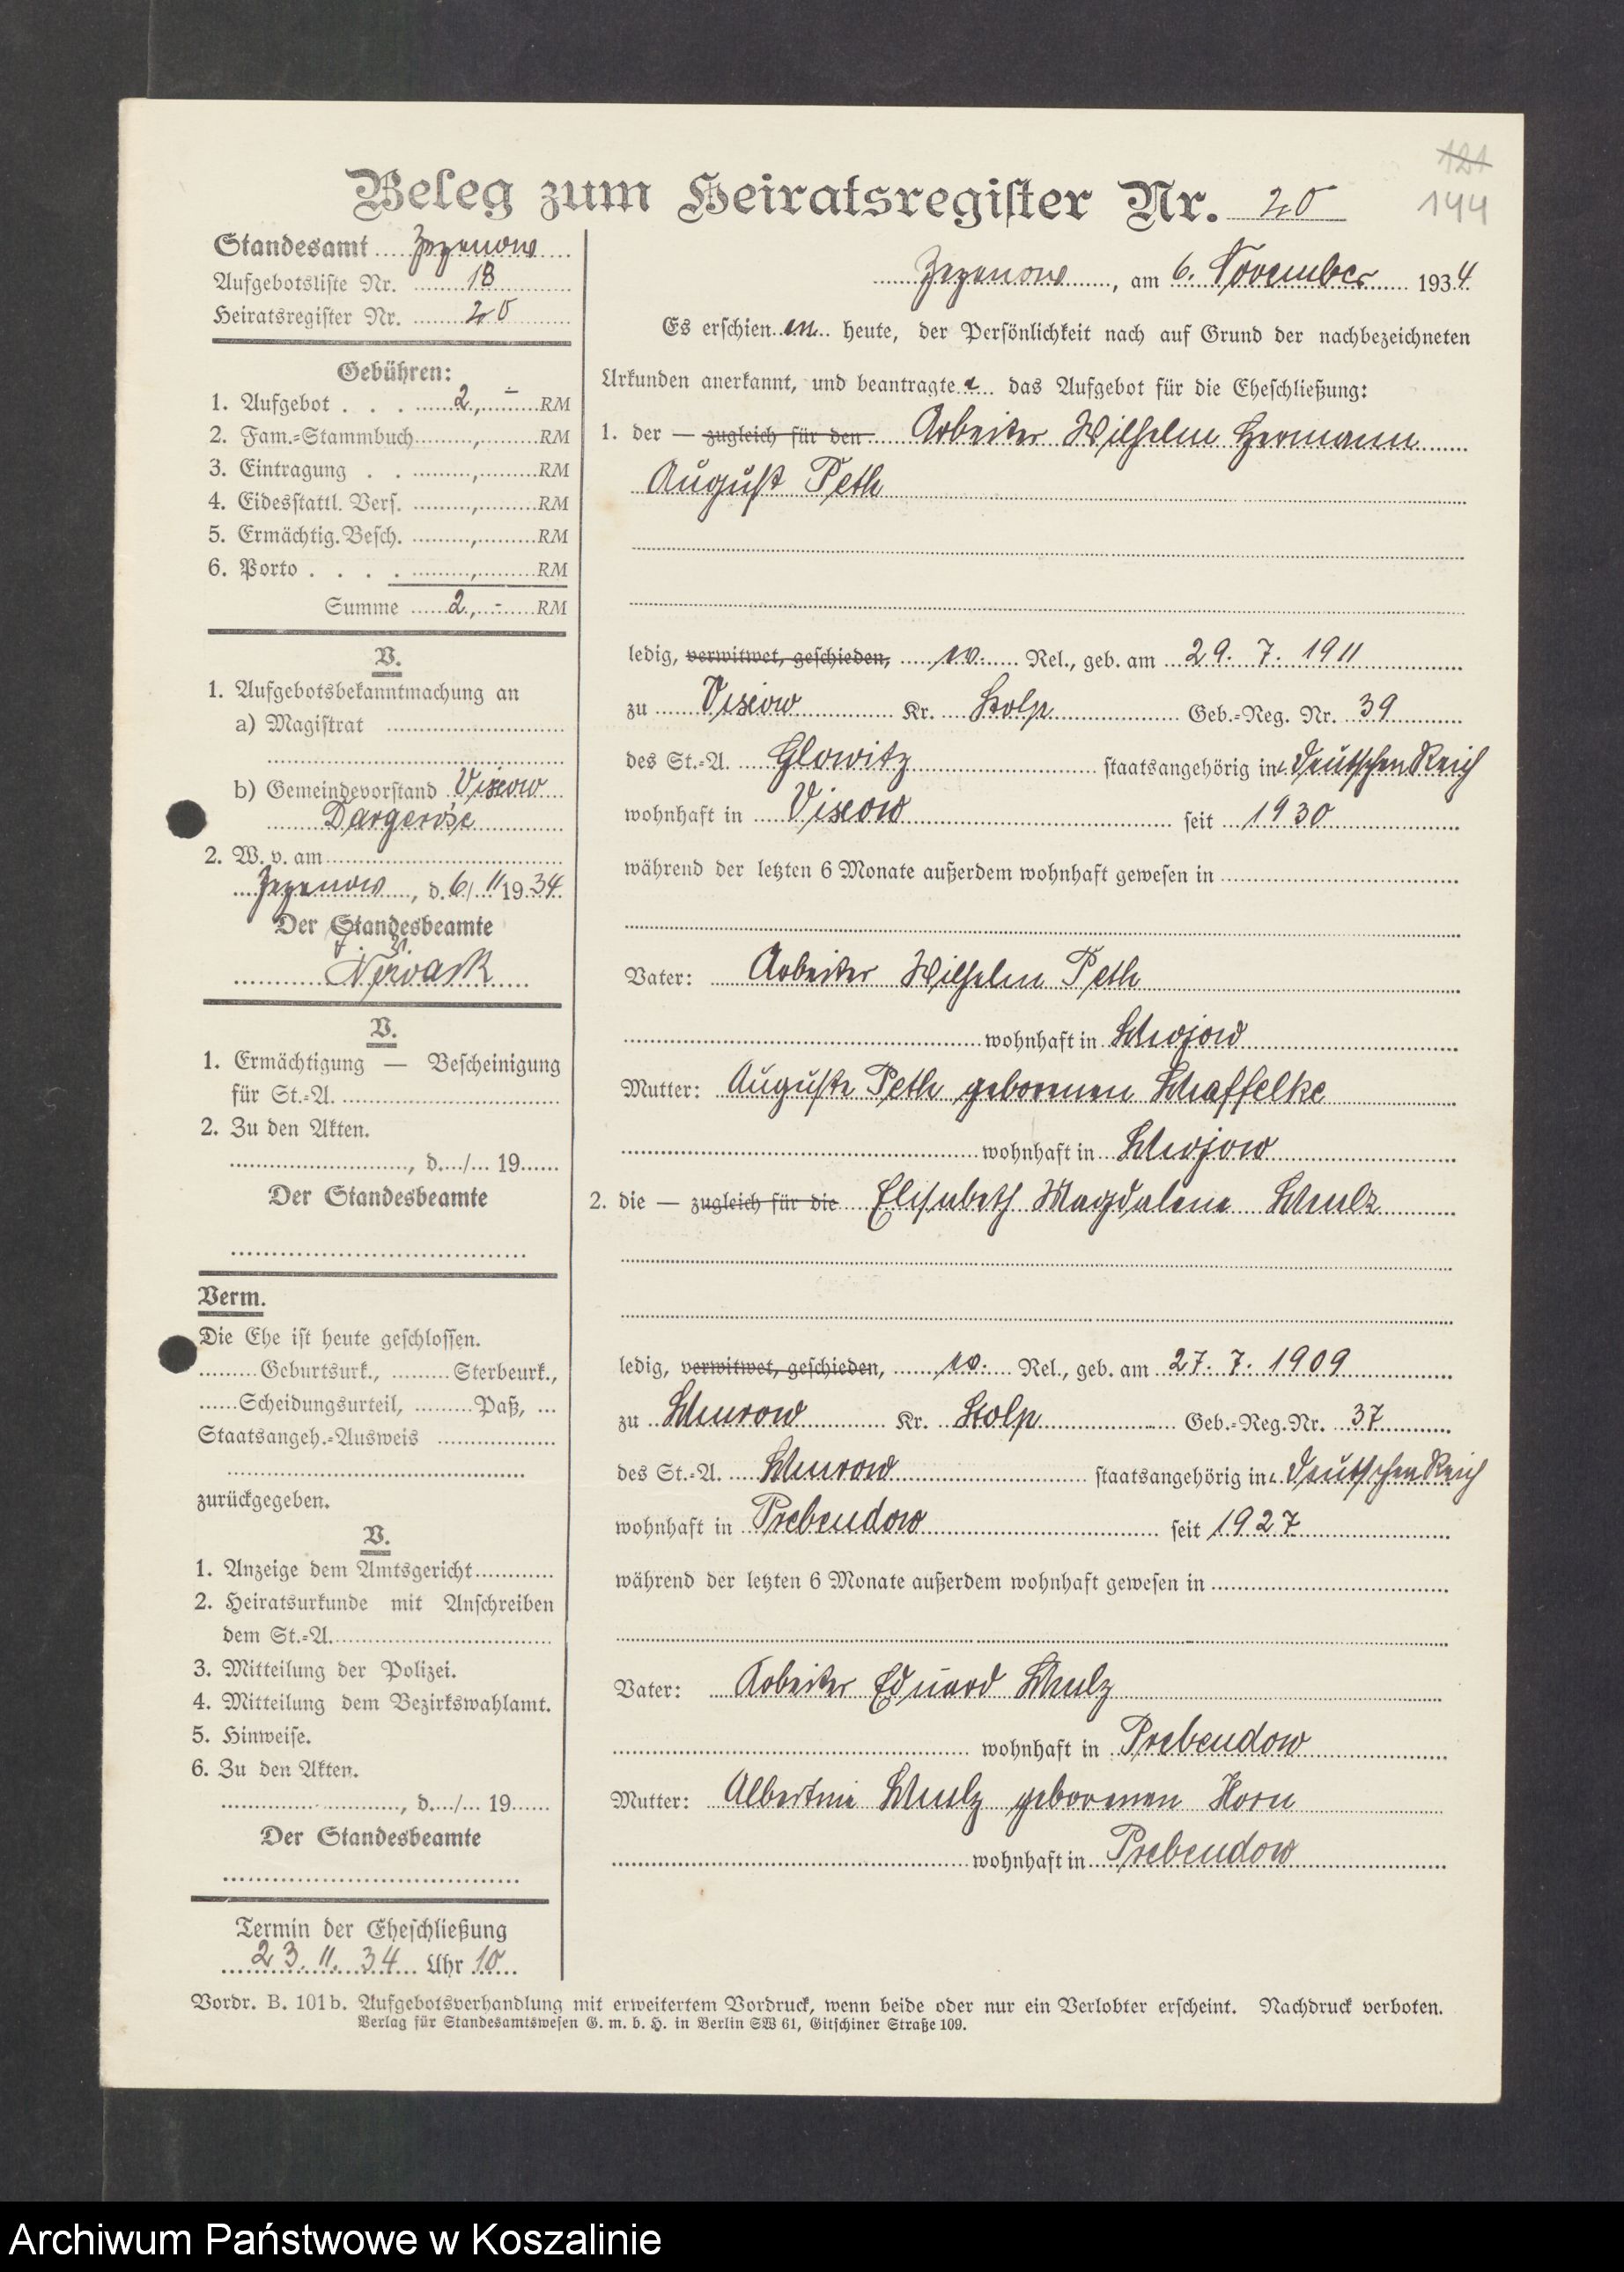 121
144
Beleg zum Heiratsregister Nr. 20
Standesamt Zezenow
Aufgebotsliste Nr. 18
Heiratsregister Nr. 20
Gebühren:
1. Aufgebot . . . 2,- RM
2. Fam.-Stammbuch , RM
3. Eintragung . . , RM
4. Eidesstattl. Vers. , RM
5. Ermächtig. Besch. , RM
6. Porto . . . . , RM
Summe 2,- RM
V.
1. Aufgebotsbekanntmachung an
a) Magistrat
b) Gemeindevorstand Vixow
Dargeröse
2. W. v. am
Zezenow, d. 6/11 1934.
Der Standesbeamte
V.
1. Ermächtigung — Bescheinigung
für St.-A.
2. Zu den Akten.
, d. / 19
Der Standesbeamte
Verm.
Die Ehe ist heute geschlossen.
Geburtsurk., Sterbeurk.,
Scheidungsurteil, Paß, ...
Staatsangeh.-Ausweis
zurückgegeben.
V.
1. Anzeige dem Amtsgericht
2. Heiratsurkunde mit Anschreiben
dem St.-A.
3. Mitteilung der Polizei.
4. Mitteilung dem Bezirkswahlamt.
5. Hinweise.
6. Zu den Akten.
, d. / 19
Der Standesbeamte
Termin der Eheschließung
23. 11. 34 Uhr 10
Zezenow, am 6. November 1934
Es erschienen heute, der Persönlichkeit nach auf Grund der nachbezeichneten
Urkunden anerkannt, und beantragte das Aufgebot für die Eheschließung:
1. der — zugleich für den Arbeiter Wilhelm Hermann
August Peth
ledig, verwitwet, geschieden, ev. Rel., geb. am 29. 7. 1911
zu Vixow Kr. Stolp Geb.-Reg. Nr. 39
des St.-A. Glowitz staatsangehörig in Deutschen Reich
wohnhaft in Vixow seit 1930
während der letzten 6 Monate außerdem wohnhaft gewesen in
Vater: Arbeiter Wilhelm Peth
wohnhaft in Schojow
Mutter: Auguste Peth geborenen Schaffelke
wohnhaft in Schojow
2. die — zugleich für die Elisabeth Magdalene Schulz
ledig, verwitwet, geschieden, ev. Rel., geb. am 27. 7. 1909
zu Schurow Kr. Stolp Geb.-Reg. Nr. 37
des St.-A. Schurow staatsangehörig in Deutschen Reich
wohnhaft in Prebendow seit 1927
während der letzten 6 Monate außerdem wohnhaft gewesen in
Vater: Arbeiter Eduard Schulz
wohnhaft in Prebendow
Mutter: Albertine Schulz geborenen Horn
wohnhaft in Prebendow
Vordr. B. 101b. Aufgebotsverhandlung mit erweitertem Vordruck, wenn beide oder nur ein Verlobter erscheint. Nachdruck verboten.
Verlag für Standesamtswesen G. m. b. H. in Berlin SW 61, Gitschiner Straße 109.
Archiwum Państwowe w Koszalinie